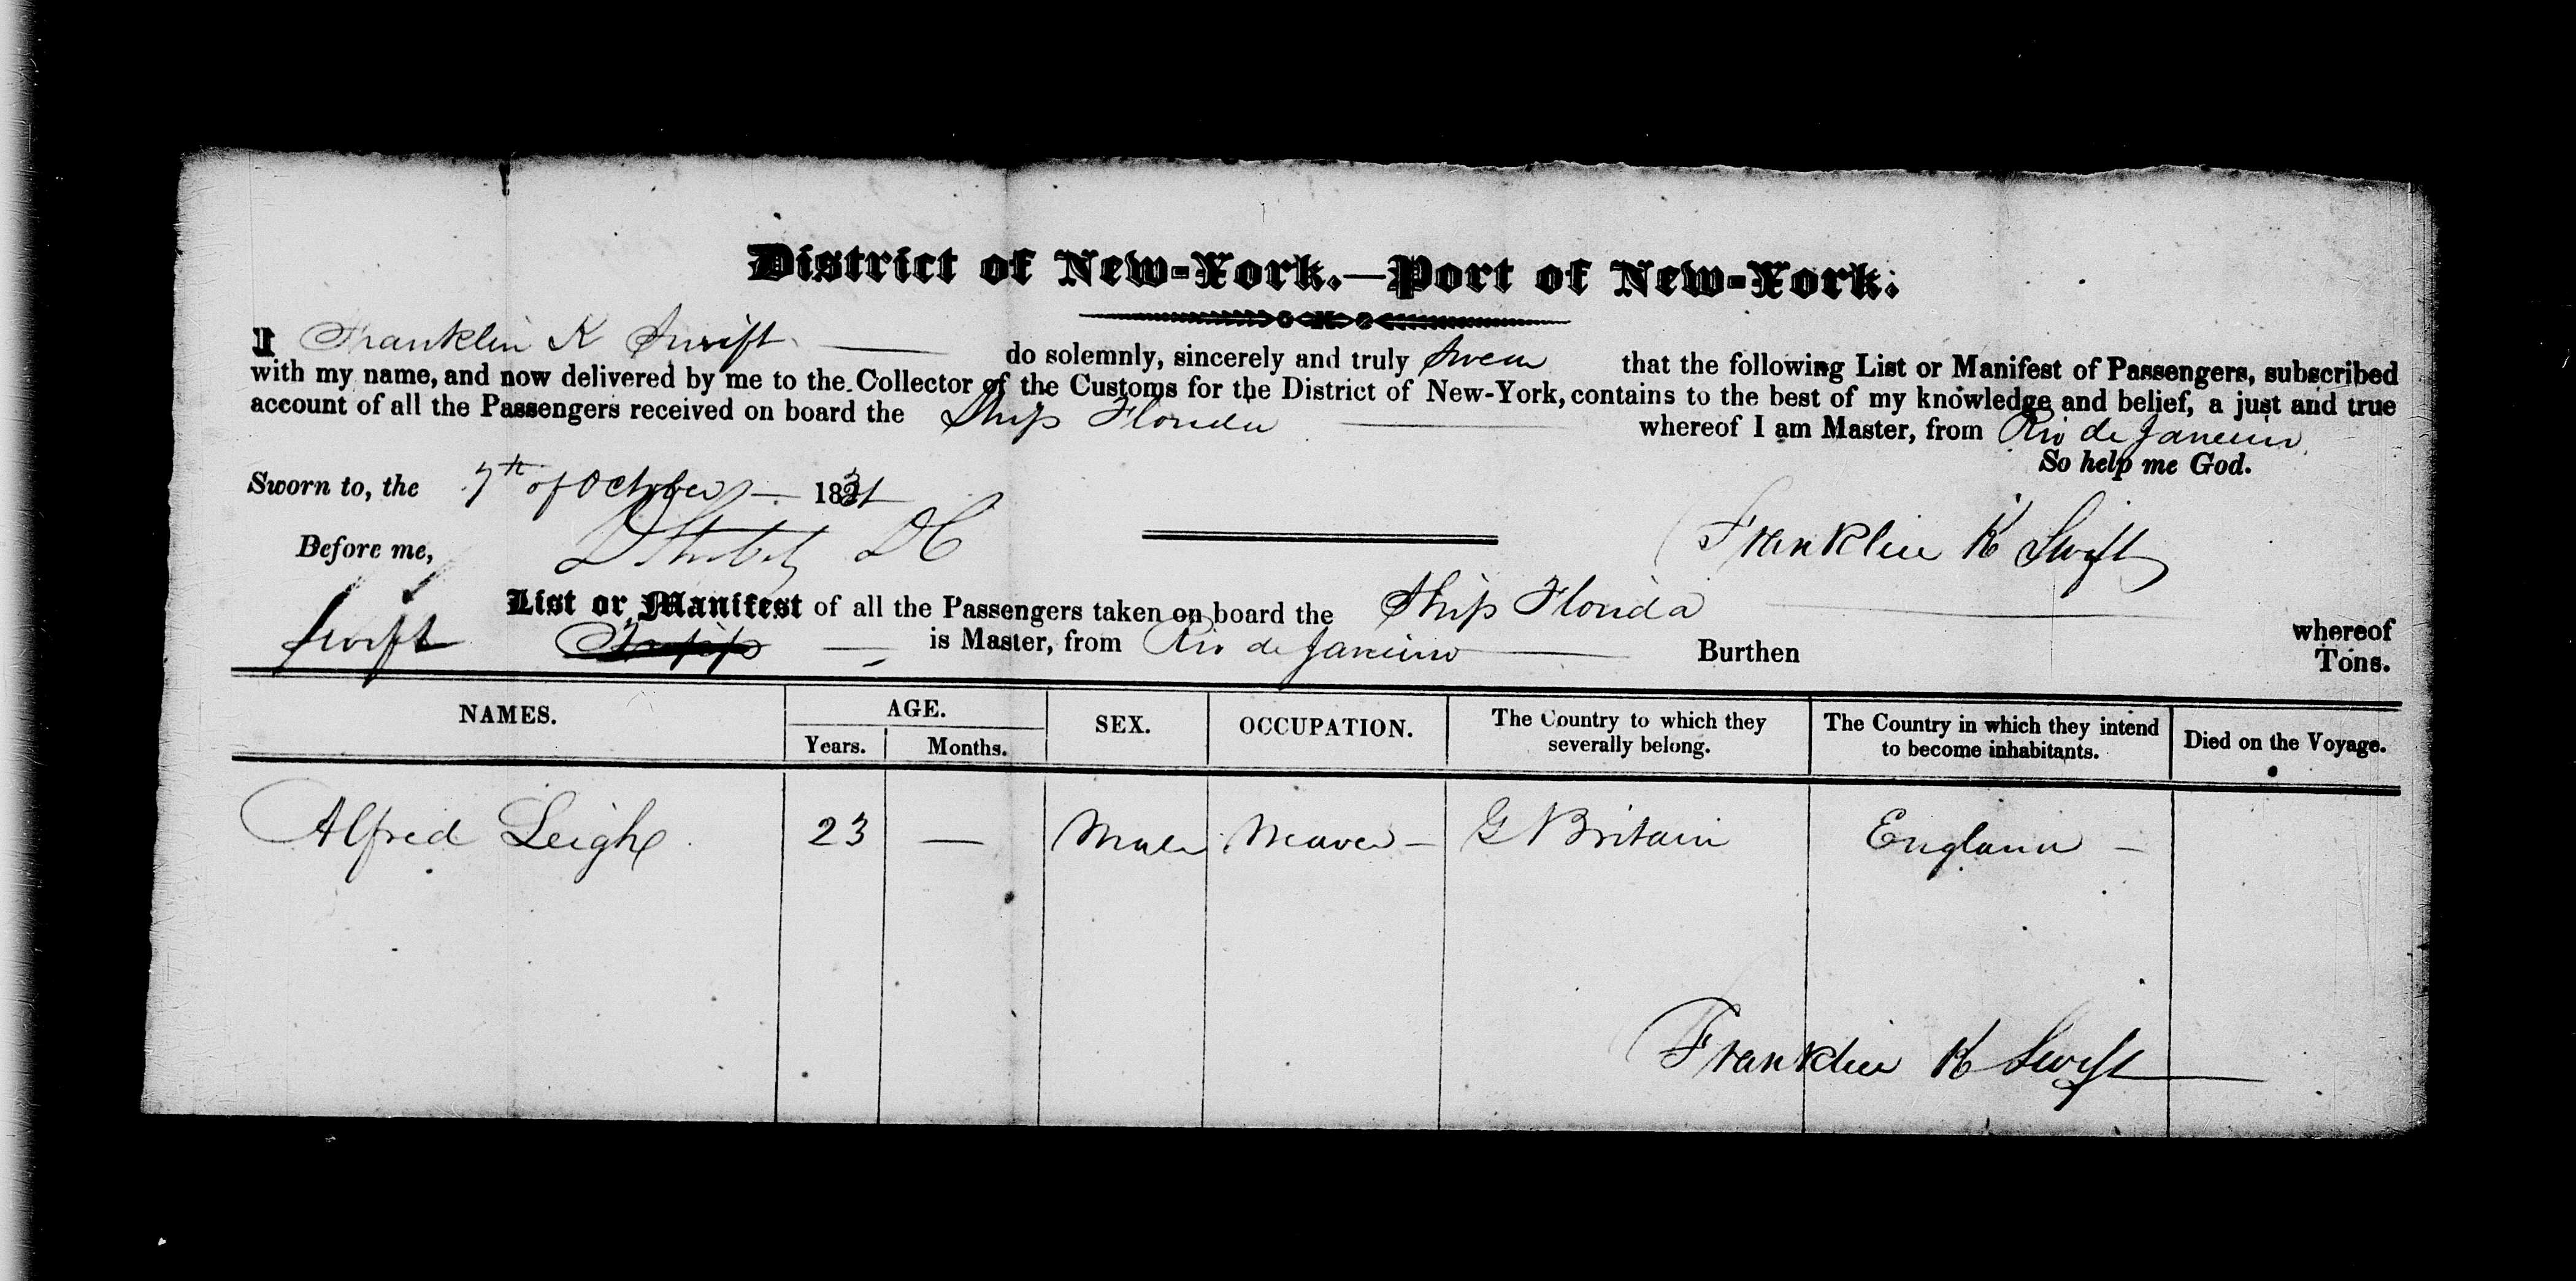 District of New-York.—Port of New-York.
I Franklin K Swift do solemnly, sincerely and truly Swear that the following List or Manifest of Passengers, subscribed
with my name, and now delivered by me to the Collector of the Customs for the District of New-York, contains to the best of my knowledge and belief, a just and true
account of all the Passengers received on board the Ship Florida whereof I am Master, from Rio de Janeiro
So help me God.
Sworn to, the 7th of October 1831
Before me, DC
Franklin K Swift
List or Manifest of all the Passengers taken on board the Ship Florida whereof
Swift is Master, from Rio de Janeiro Burthen Tons.
NAMES. AGE. SEX. OCCUPATION. The Country to which they severally belong. The Country in which they intend to become inhabitants. Died on the Voyage.
Years. Months.
Alfred Leigh 23 — Male Weaver — G Britain England —
Franklin K Swift